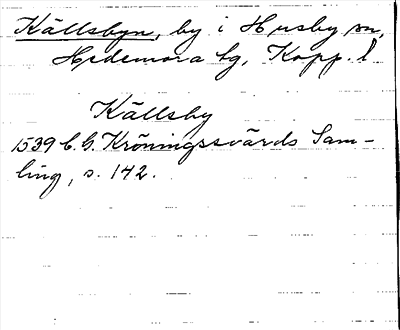 Källsbyn, by i Husby sn,
Hedemora tg, Kopp. l
Källsby
1539 C. G. Kröningssvärds Sam-
ling, s. 142.